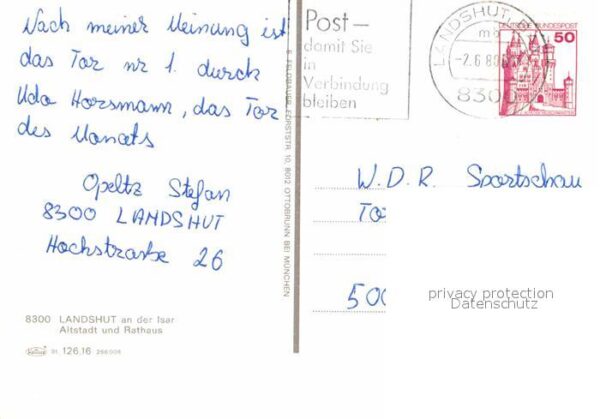 Nach meiner Meinung ist
das Tor nr 1. durch
Udo Horsmann, das Tor
des Monats
Opeltz Stefan
8300 LANDSHUT
Hochstraße 26
8300 LANDSHUT an der Isar
Altstadt und Rathaus
91 126,16
Post—
damit Sie
in
Verbindung
bleiben
LANDSHUT
-2.6.80
8300
DEUTSCHE BUNDESPOST
50
W.D.R. Sportschau
To
500
privacy protection
Datenschutz
OTTOBRUNN BEI MÜNCHEN